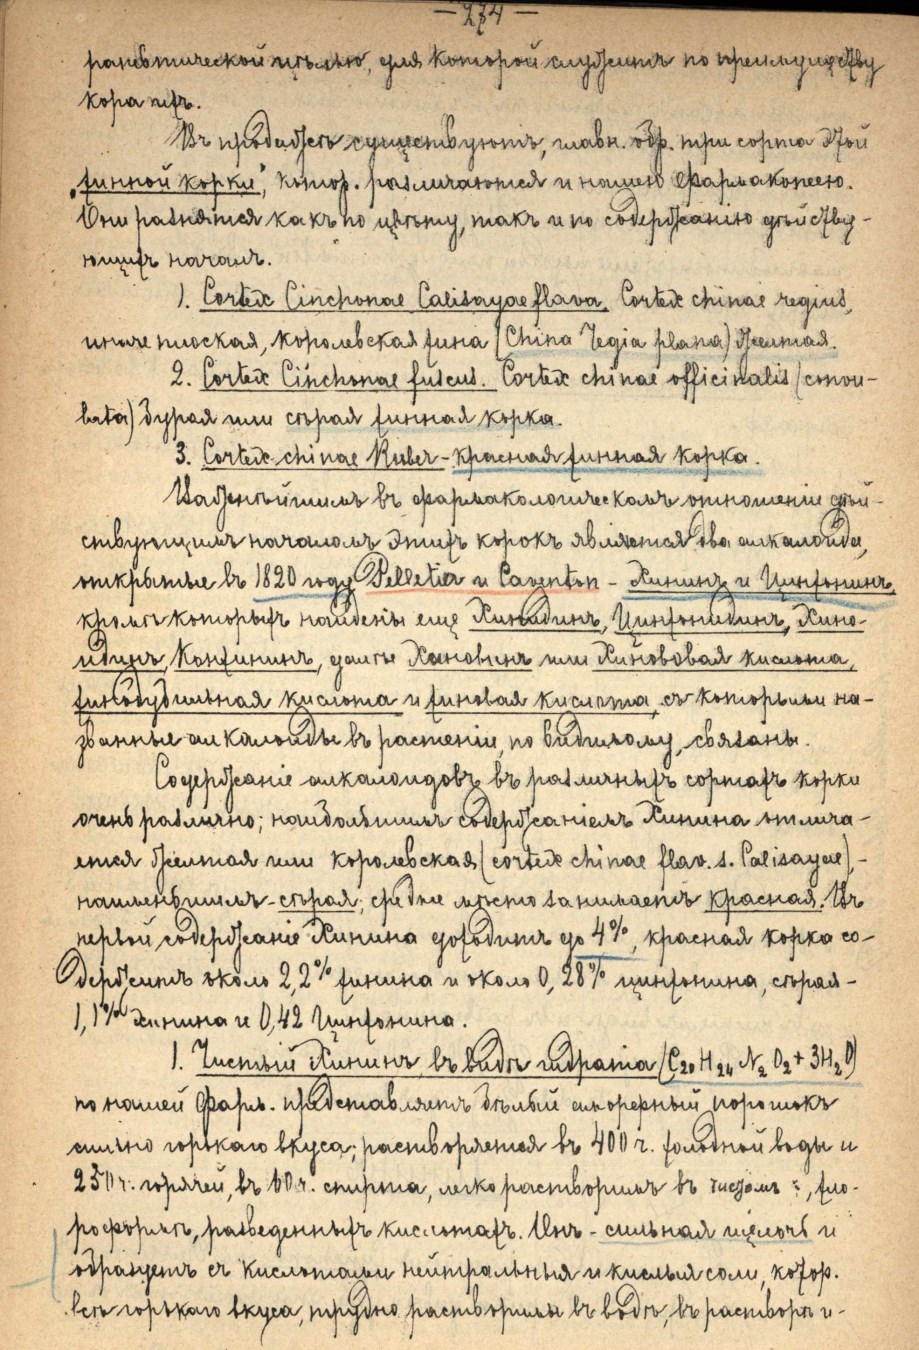 — 274 —
рапевтической цѣлью, для которой служитъ по преимуществу
кора ихъ.
Въ продажѣ существуютъ, главн. обр. три сорта этой
„хинной корки“, котор. различаются и нашею Фармакопеею.
Они разнятся какъ по цвѣту, такъ и по содержанію дѣйству-
ющихъ началъ.
1. Cortex Cinchonae Calisayae flava, Cortex chinae regius,
иначе плоская, королевская хина (China regia plana) желтая.
2. Cortex Cinchonae fuscus. Cortex chinae officinalis (convo-
luta) бурая или сѣрая хинная корка.
3. Cortex chinae Ruber - красная хинная корка.
Важнѣйшимъ въ фармакологическомъ отношеніи дѣй-
ствующимъ началомъ этихъ корокъ являются два алкалоида,
открытые въ 1820 году Pelletier и Caventon - Хининъ и Цинхонинъ,
кромѣ которыхъ найдены еще Хинидинъ, Цинхонидинъ, Хино-
идинъ, Конхининъ, далѣе Хиновинъ или Хинововая кислота,
хинодубильная кислота и хиновая кислота, съ которыми на-
званные алкалоиды въ растеніи, по видимому, связаны.
Содержаніе алкалоидовъ въ различныхъ сортахъ корки
очень различно; наибольшимъ содержаніемъ Хинина отлича-
ется желтая или королевская (cortex chinae flav. s. Calisayae), -
наименьшимъ - сѣрая; средне мѣсто занимаетъ красная. Въ
первой содержаніе Хинина доходитъ до 4%, красная корка со-
держитъ около 2,2% хинина и около 0,28% цинхонина, сѣрая -
1,1% Хинина и 0,42 Цинхонина.
1. Чистый Хининъ, въ видѣ гидрата (C20 H24 N2 O2 + 3H2O)
по нашей Фарм. представляетъ бѣлый аморфный порошокъ
сильно горькаго вкуса; растворяется въ 400 ч. холодной воды и
250 ч. горячей, въ 60 ч. спирта, легко растворимъ въ чистомъ , хло-
роформѣ, разведенныхъ кислотахъ. Онъ - сильная щелочь и
образуетъ съ кислотами нейтральныя и кислыя соли, котор.
всѣ горькаго вкуса, трудно растворимы въ водѣ, въ растворѣ и-